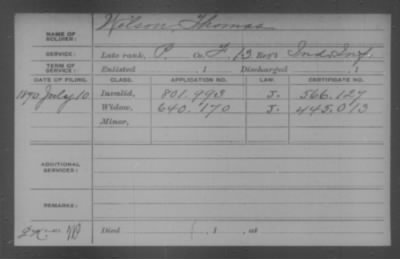 NAME OF SOLDIER: Wilson, Thomas
SERVICE: Late rank, P. Co. F, 13 Reg't Ind. Inf.
TERM OF SERVICE: Enlisted , 1 Discharged , 1
DATE OF FILING. CLASS. APPLICATION NO. LAW. CERTIFICATE NO.
1890 July 10 Invalid, 801.993 J. 566.127
Widow, 640.170 J. 445.013
Minor,
ADDITIONAL SERVICES:
REMARKS:
Died , 1 , at